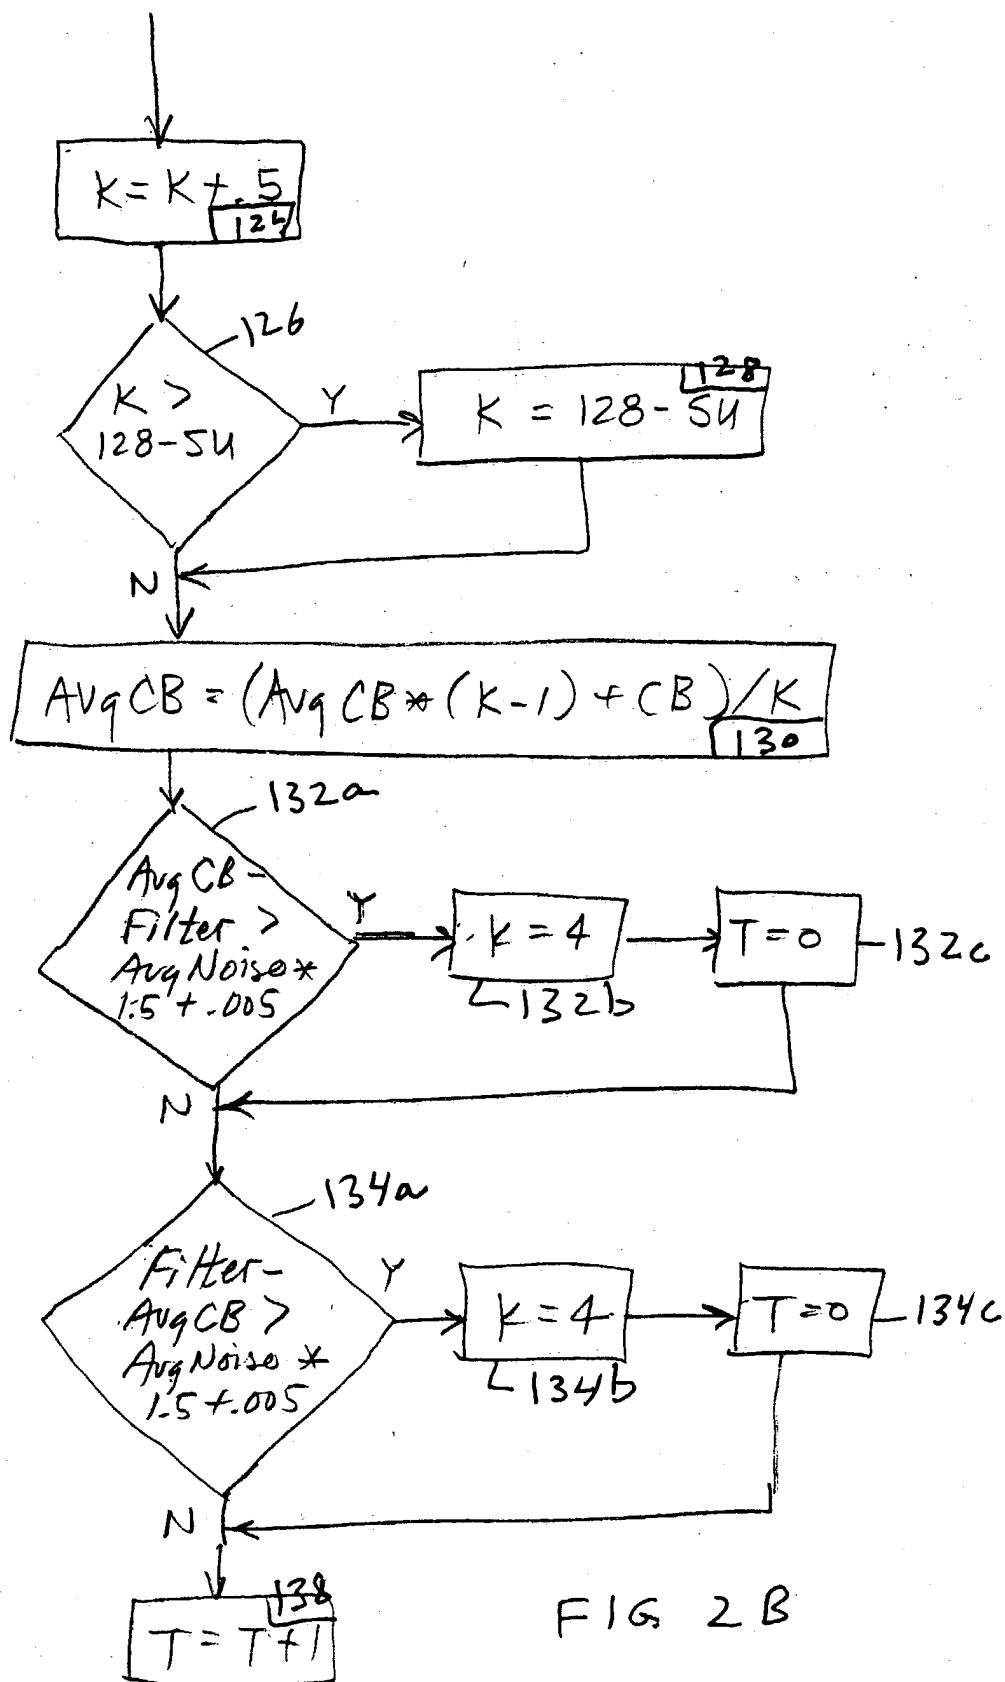 K = K + .5
126
K >
128-5U
Y
128
K = 128-5U
N
AvgCB = (AvgCB * (K-1) + CB)/K
130
132a
AvgCB -
Filter >
AvgNoise *
1.5 + .005
Y
K = 4
132b
T=0
132c
N
134a
Filter -
AvgCB >
AvgNoise *
1.5 + .005
Y
K = 4
134b
T=0
134c
N
138
T = T+1
FIG 2B